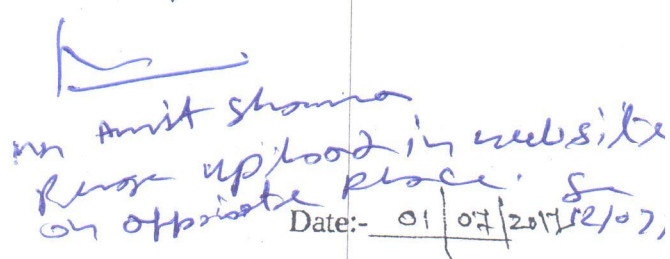 Mr Amit Sharma
Please upload in website
on oppriate place.
Date:- 01/07/2017 12/07/